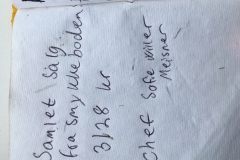 Samlet Salg
fra smykke boden
3128 kr
Chef Sofie Willer
Meisner